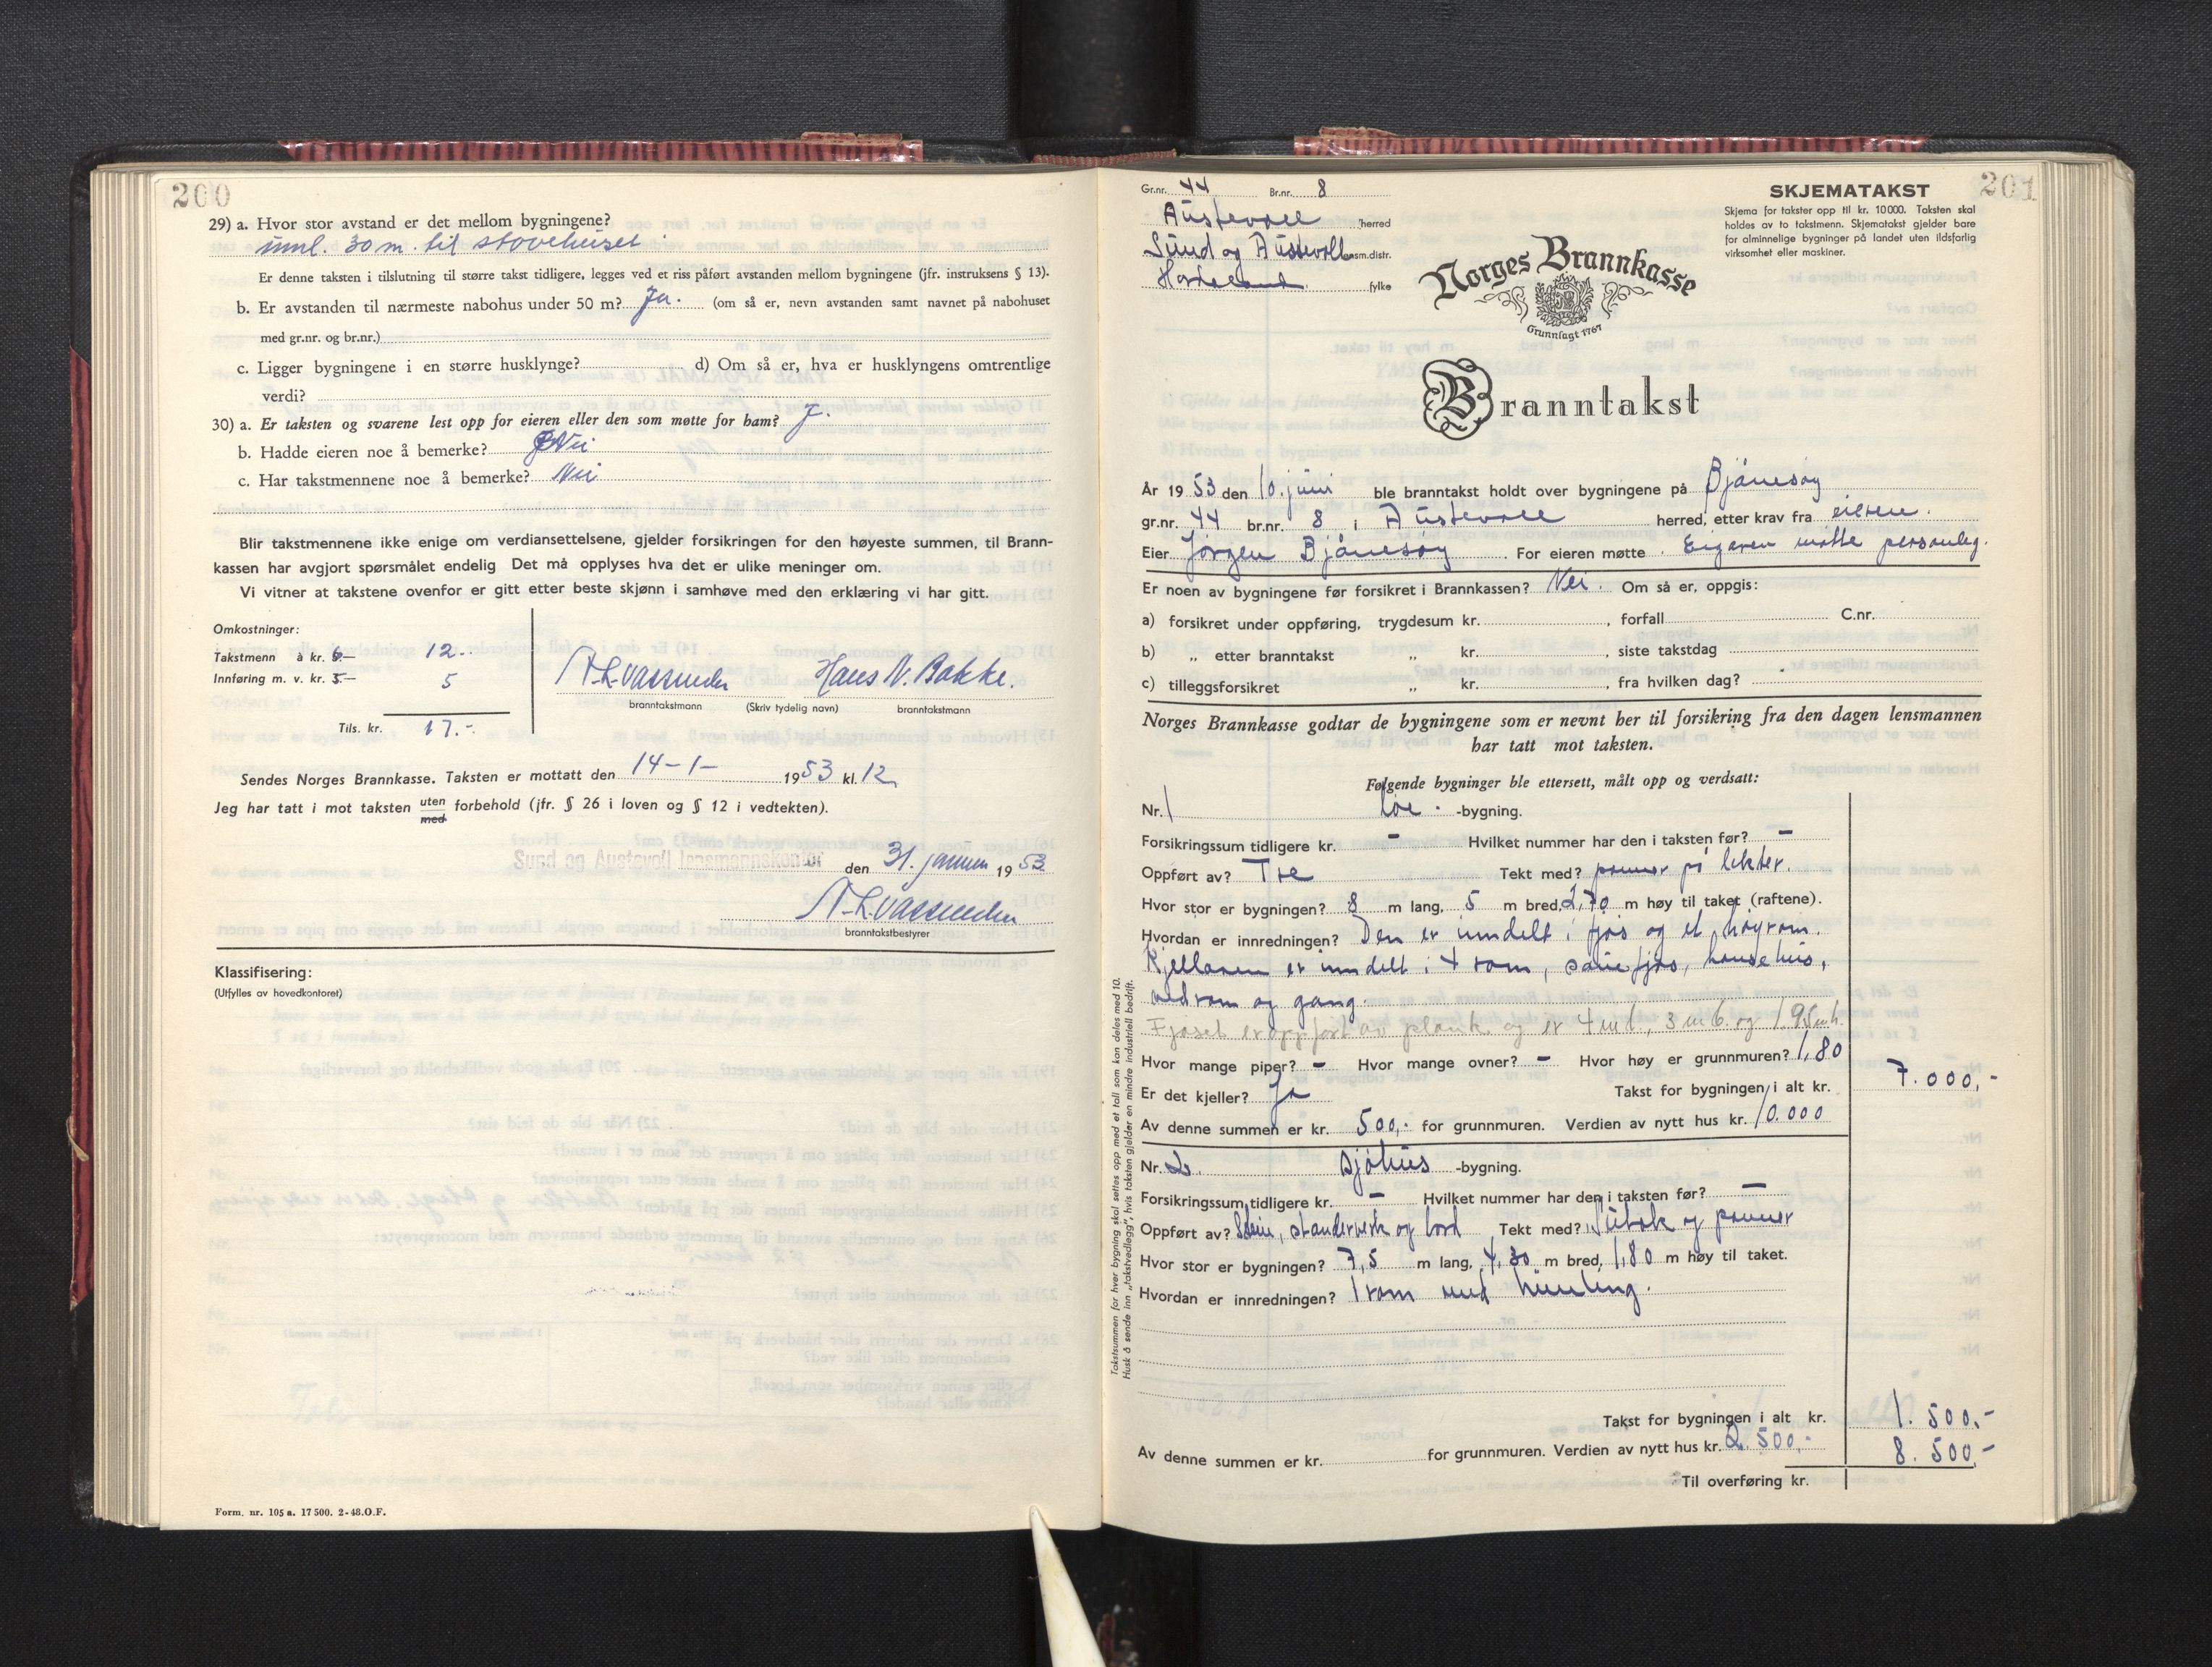 200
29) a. Hvor stor avstand er det mellom bygningene?
uml. 30 m. til stovehuset
Er denne taksten i tilslutning til større takst tidligere, legges ved et riss påført avstanden mellom bygningene (jfr. instruksens § 13).
b. Er avstanden til nærmeste nabohus under 50 m? Ja. (om så er, nevn avstanden samt navnet på nabohuset
med gr.nr. og br.nr.)
c. Ligger bygningene i en større husklynge? d) Om så er, hva er husklyngens omtrentlige
verdi?
30) a. Er taksten og svarene lest opp for eieren eller den som møtte for ham? J.
b. Hadde eieren noe å bemerke? Nei
c. Har takstmennene noe å bemerke? Nei
Blir takstmennene ikke enige om verdiansettelsene, gjelder forsikringen for den høyeste summen, til Brann-
kassen har avgjort spørsmålet endelig Det må opplyses hva det er ulike meninger om.
Vi vitner at takstene ovenfor er gitt etter beste skjønn i samhøve med den erklæring vi har gitt.
Omkostninger:
Takstmenn à kr. 6.— 12.-
Innføring m. v. kr. 5.— 5
Tils. kr. 17.-
Hans N. Bakke.
branntakstmann (Skriv tydelig navn) branntakstmann
Sendes Norges Brannkasse. Taksten er mottatt den 14-1- 1953 kl. 12
Jeg har tatt i mot taksten uten med forbehold (jfr. § 26 i loven og § 12 i vedtekten).
Sund og Austevoll lensmannskontor den 31. januar 1953
branntakstbestyrer
Klassifisering:
(Utfylles av hovedkontoret)
Form. nr. 105 a. 17 500. 2-48.O.F.
201
Gr.nr. 44 Br.nr. 8
Austevoll herred
Sund og Austevoll lensm.distr.
Hordaland fylke
SKJEMATAKST
Skjema for takster opp til kr. 10000. Taksten skal
holdes av to takstmenn. Skjematakst gjelder bare
for alminnelige bygninger på landet uten ildsfarlig
virksomhet eller maskiner.
Norges Brannkasse
Grunnlagt 1767
Branntakst
År 1953 den 10. juni ble branntakst holdt over bygningene på Bjånesøy
gr.nr. 44 br.nr. 8 i Austevoll herred, etter krav fra eieren.
Eier Jörgen Bjånesøy For eieren møtte Eigaren møtte personleg.
Er noen av bygningene før forsikret i Brannkassen? Nei. Om så er, oppgis:
a) forsikret under oppføring, trygdesum kr. , forfall C.nr.
b) „ etter branntakst „ kr. , siste takstdag
c) tilleggsforsikret „ kr. , fra hvilken dag?
Norges Brannkasse godtar de bygningene som er nevnt her til forsikring fra den dagen lensmannen
har tatt mot taksten.
Følgende bygninger ble ettersett, målt opp og verdsatt:
Nr. 1 Löe -bygning.
Forsikringssum tidligere kr. - Hvilket nummer har den i taksten før? -
Oppført av? Tre Tekt med? panner på lekter.
Hvor stor er bygningen? 8 m lang, 5 m bred, 2,70 m høy til taket (raftene).
Hvordan er innredningen? Den er inndelt i fjøs og et høyrom.
Kjellaren er inndelt i 4 rom, sauefjøs, hønsehus,
vedrom og gang.
Fjøset er oppført av plank og er 4 m l., 3 m b. og 1,95 m h.
Hvor mange piper? - Hvor mange ovner? - Hvor høy er grunnmuren? 1,80
Er det kjeller? Ja Takst for bygningen i alt kr. 7.000,-
Av denne summen er kr. 500,- for grunnmuren. Verdien av nytt hus kr. 10.000
Nr. 2. Sjöhus -bygning.
Forsikringssum tidligere kr. - Hvilket nummer har den i taksten før? -
Oppført av? Stein, standerverk og bord Tekt med? Sutak og panner
Hvor stor er bygningen? 7,5 m lang, 4,30 m bred, 1,80 m høy til taket.
Hvordan er innredningen? 1 rom med himling.
Takst for bygningen i alt kr. 1.500,-
Av denne summen er kr. for grunnmuren. Verdien av nytt hus kr. 2.500,- 8.500,-
Til overføring kr.
Takstsummen for hver bygning skal settes opp med et tall som kan deles med 10.
Husk å sende inn „takstvedlegg", hvis taksten gjelder en mindre industriell bedrift.